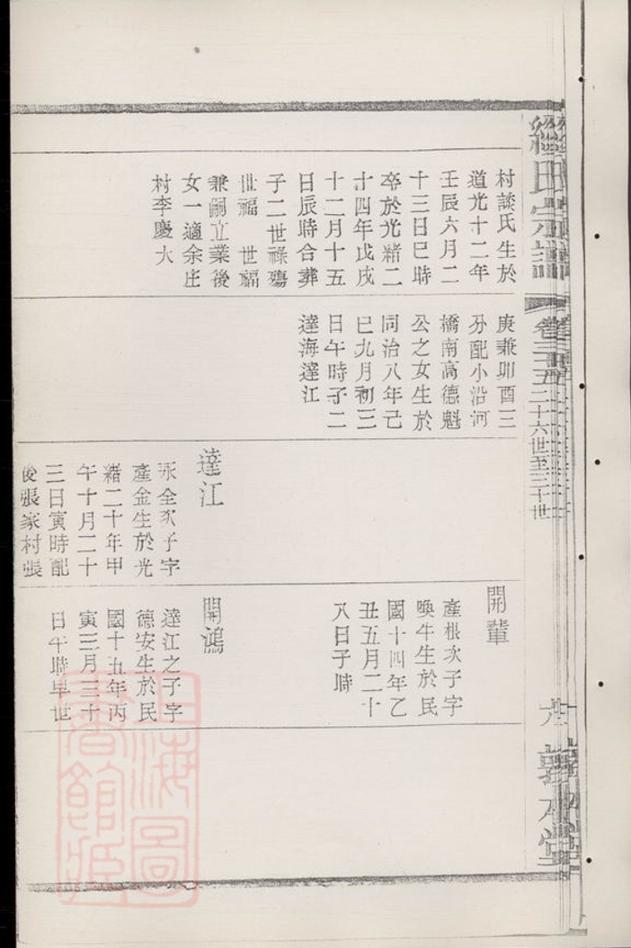 經氏宗譜
卷三十五
二十六世至三十世
敦本堂
村談氏生於
道光十二年
壬辰六月二
十三日巳時
卒於光緒二
十四年戊戌
十二月十五
日辰時合葬
子二世祿殤
世福 世福
兼嗣立業後
女一適余庄
村李慶大
庚兼卯酉三
分配小沿河
橋南高德魁
公之女生於
同治八年己
巳九月初三
日午時子二
達海達江
達江
永全次子字
產金生於光
緒二十年甲
午十月二十
三日寅時配
後張家村張
開輩
產根次子字
喚牛生於民
國十四年乙
丑五月二十
八日子時
開鴻
達江之子字
德安生於民
國十五年丙
寅三月三十
日午時早世